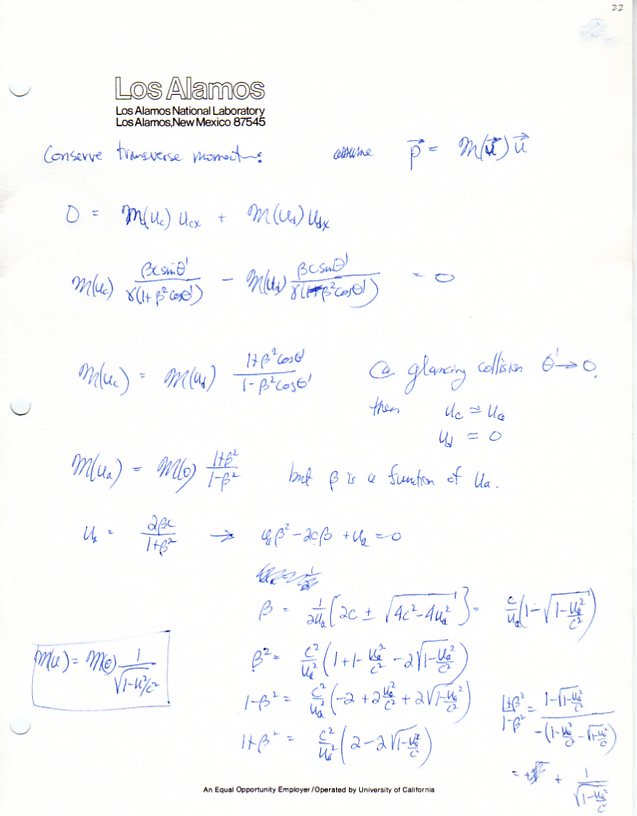 22
Los Alamos
Los Alamos National Laboratory
Los Alamos, New Mexico 87545
Conserve transverse momentum: assume p⃗ = m(u⃗) u⃗
0 = m(u_c) u_cx + m(u_d) u_dx
m(u_c) βc sinθ' / γ(1+β²cosθ') − m(u_d) βc sinθ' / γ(1−β²cosθ') = 0
m(u_c) = m(u_d) (1+β²cosθ')/(1−β²cosθ') @ glancing collision θ'→0,
then u_c ≃ u_a
u_d = 0
m(u_a) = m(0) (1+β²)/(1−β²) but β is a function of u_a.
u_a = 2βc/(1+β²) → u_aβ² − 2cβ + u_a = 0
β = 1/2u_a [2c ± √(4c²−4u_a²)] = c/u_a (1−√(1−u_a²/c²))
m(u) = m(0) 1/√(1−u²/c²)
β² = c²/u_a² (1+1−u_a²/c² − 2√(1−u_a²/c²))
1−β² = c²/u_a² (−2 + 2u_a²/c² + 2√(1−u_a²/c²))
1+β² = c²/u_a² (2 − 2√(1−u_a²/c²))
(1+β²)/(1−β²) = (1−√(1−u_a²/c²)) / −(1−u_a²/c² − √(1−u_a²/c²))
= + 1/√(1−u_a²/c²)
An Equal Opportunity Employer/Operated by University of California